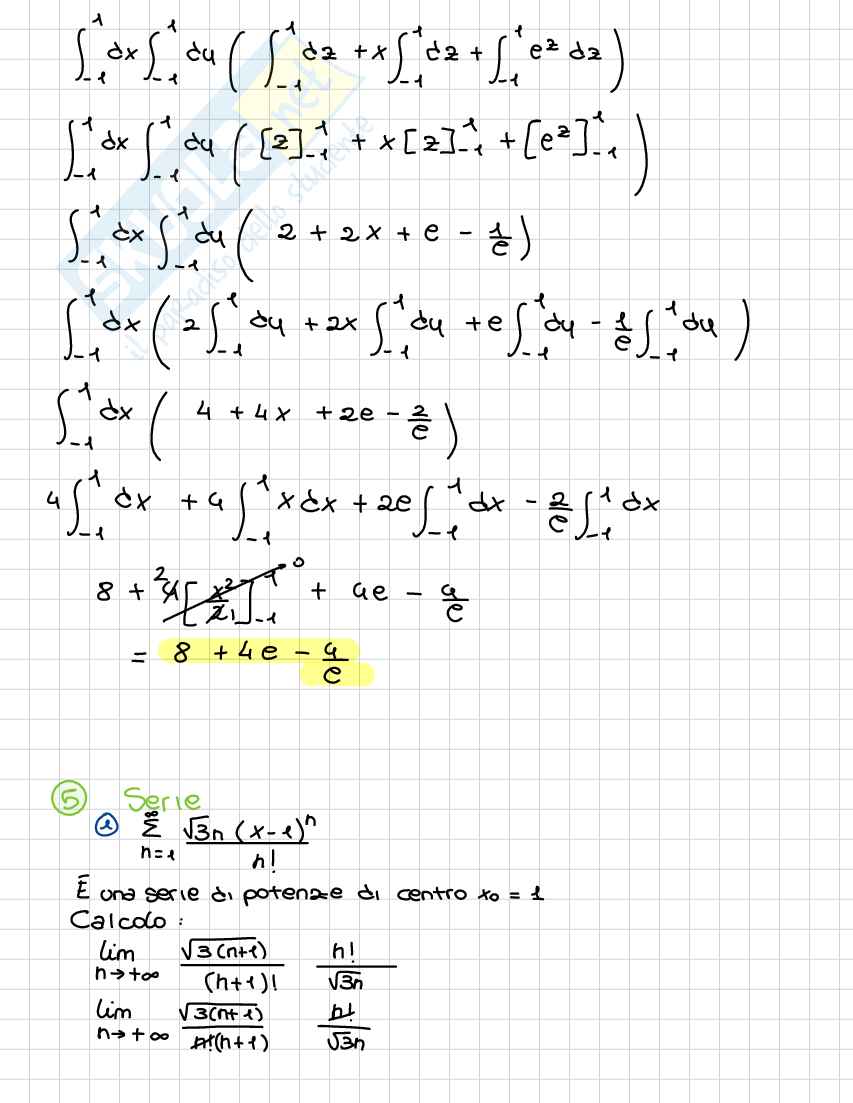 ∫₋₁¹ dx ∫₋₁¹ dy ( ∫₋₁¹ dz + x ∫₋₁¹ dz + ∫₋₁¹ e^z dz )
∫₋₁¹ dx ∫₋₁¹ dy ( [z]₋₁¹ + x [z]₋₁¹ + [e^z]₋₁¹ )
∫₋₁¹ dx ∫₋₁¹ dy ( 2 + 2x + e - 1/e )
∫₋₁¹ dx ( 2 ∫₋₁¹ dy + 2x ∫₋₁¹ dy + e ∫₋₁¹ dy - 1/e ∫₋₁¹ dy )
∫₋₁¹ dx ( 4 + 4x + 2e - 2/e )
4 ∫₋₁¹ dx + 4 ∫₋₁¹ x dx + 2e ∫₋₁¹ dx - 2/e ∫₋₁¹ dx
8 + ²4 [x²/2 ₁]₋₁¹ ⁰ + 4e - 4/e
= 8 + 4e - 4/e
⑤ Serie
① ∞ Σ n=1 √3n (x-1)^n / n!
È una serie di potenze di centro x₀ = 1
Calcolo :
lim n→+∞ √3(n+1) / (n+1)! n! / √3n
lim n→+∞ √3(n+1) / n!(n+1) n! / √3n
SKUOLA.net
il paradiso dello studente